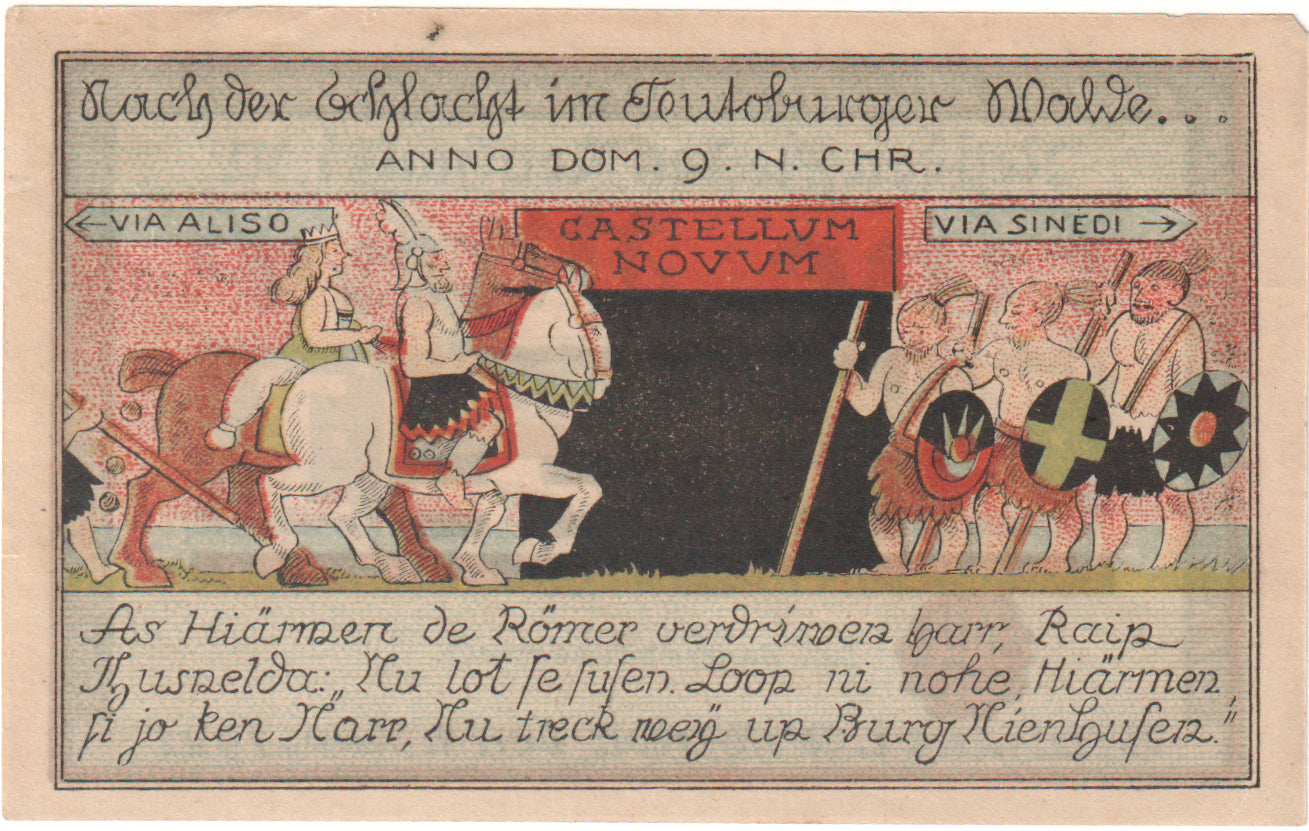 Nach der Schlacht im Teutoburger Walde...
ANNO DOM. 9. N. CHR.
←VIA ALISO
CASTELLVM
NOVVM
VIA SINEDI →
As Hiärmen de Römer verdriwen harr, Raip
Thusnelda: „Nu lot se susen. Loop ni nohe, Hiärmen,
si jo ken Narr, Nu treck wey up Burg Nienhusen."